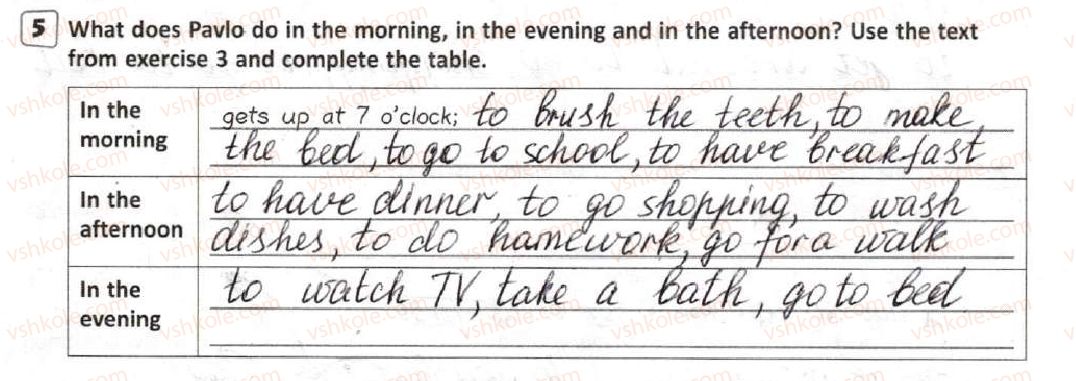 5 What does Pavlo do in the morning, in the evening and in the afternoon? Use the text
from exercise 3 and complete the table.
In the
morning
gets up at 7 o'clock; to brush the teeth, to make
the bed, to go to school, to have breakfast
In the
afternoon
to have dinner, to go shopping, to wash
dishes, to do hamework, go for a walk
In the
evening
to watch TV, take a bath, go to bed
vshkole.com